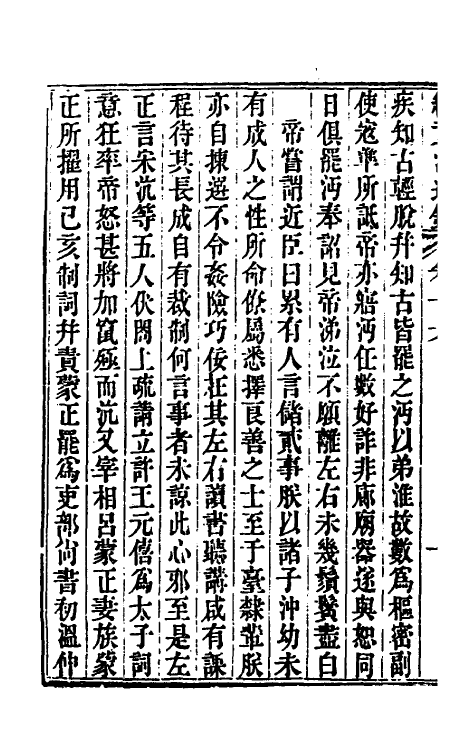 疾知古輕脫幷知古皆罷之沔以弟淮故數為樞密副
使寇準所詆帝亦寤沔任數好詐非廊廟器遂與恕同
日俱罷沔奉詔見帝涕泣不願離左右未幾鬚鬢盡白
帝嘗謂近臣曰累有人言儲貳事朕以諸子沖幼未
有成人之性所命僚屬悉擇良善之士至于臺隸輩朕
亦自揀選不令姦險巧佞在其左右讀書聽講咸有課
程待其長成自有裁制何言事者未諒此心邪至是左
正言宋沆等五人伏閤上疏請立許王元僖為太子詞
意狂率帝怒甚將加竄殛而沆又宰相呂蒙正妻族蒙
正所擢用己亥制詞幷責蒙正罷為吏部尚書初溫仲